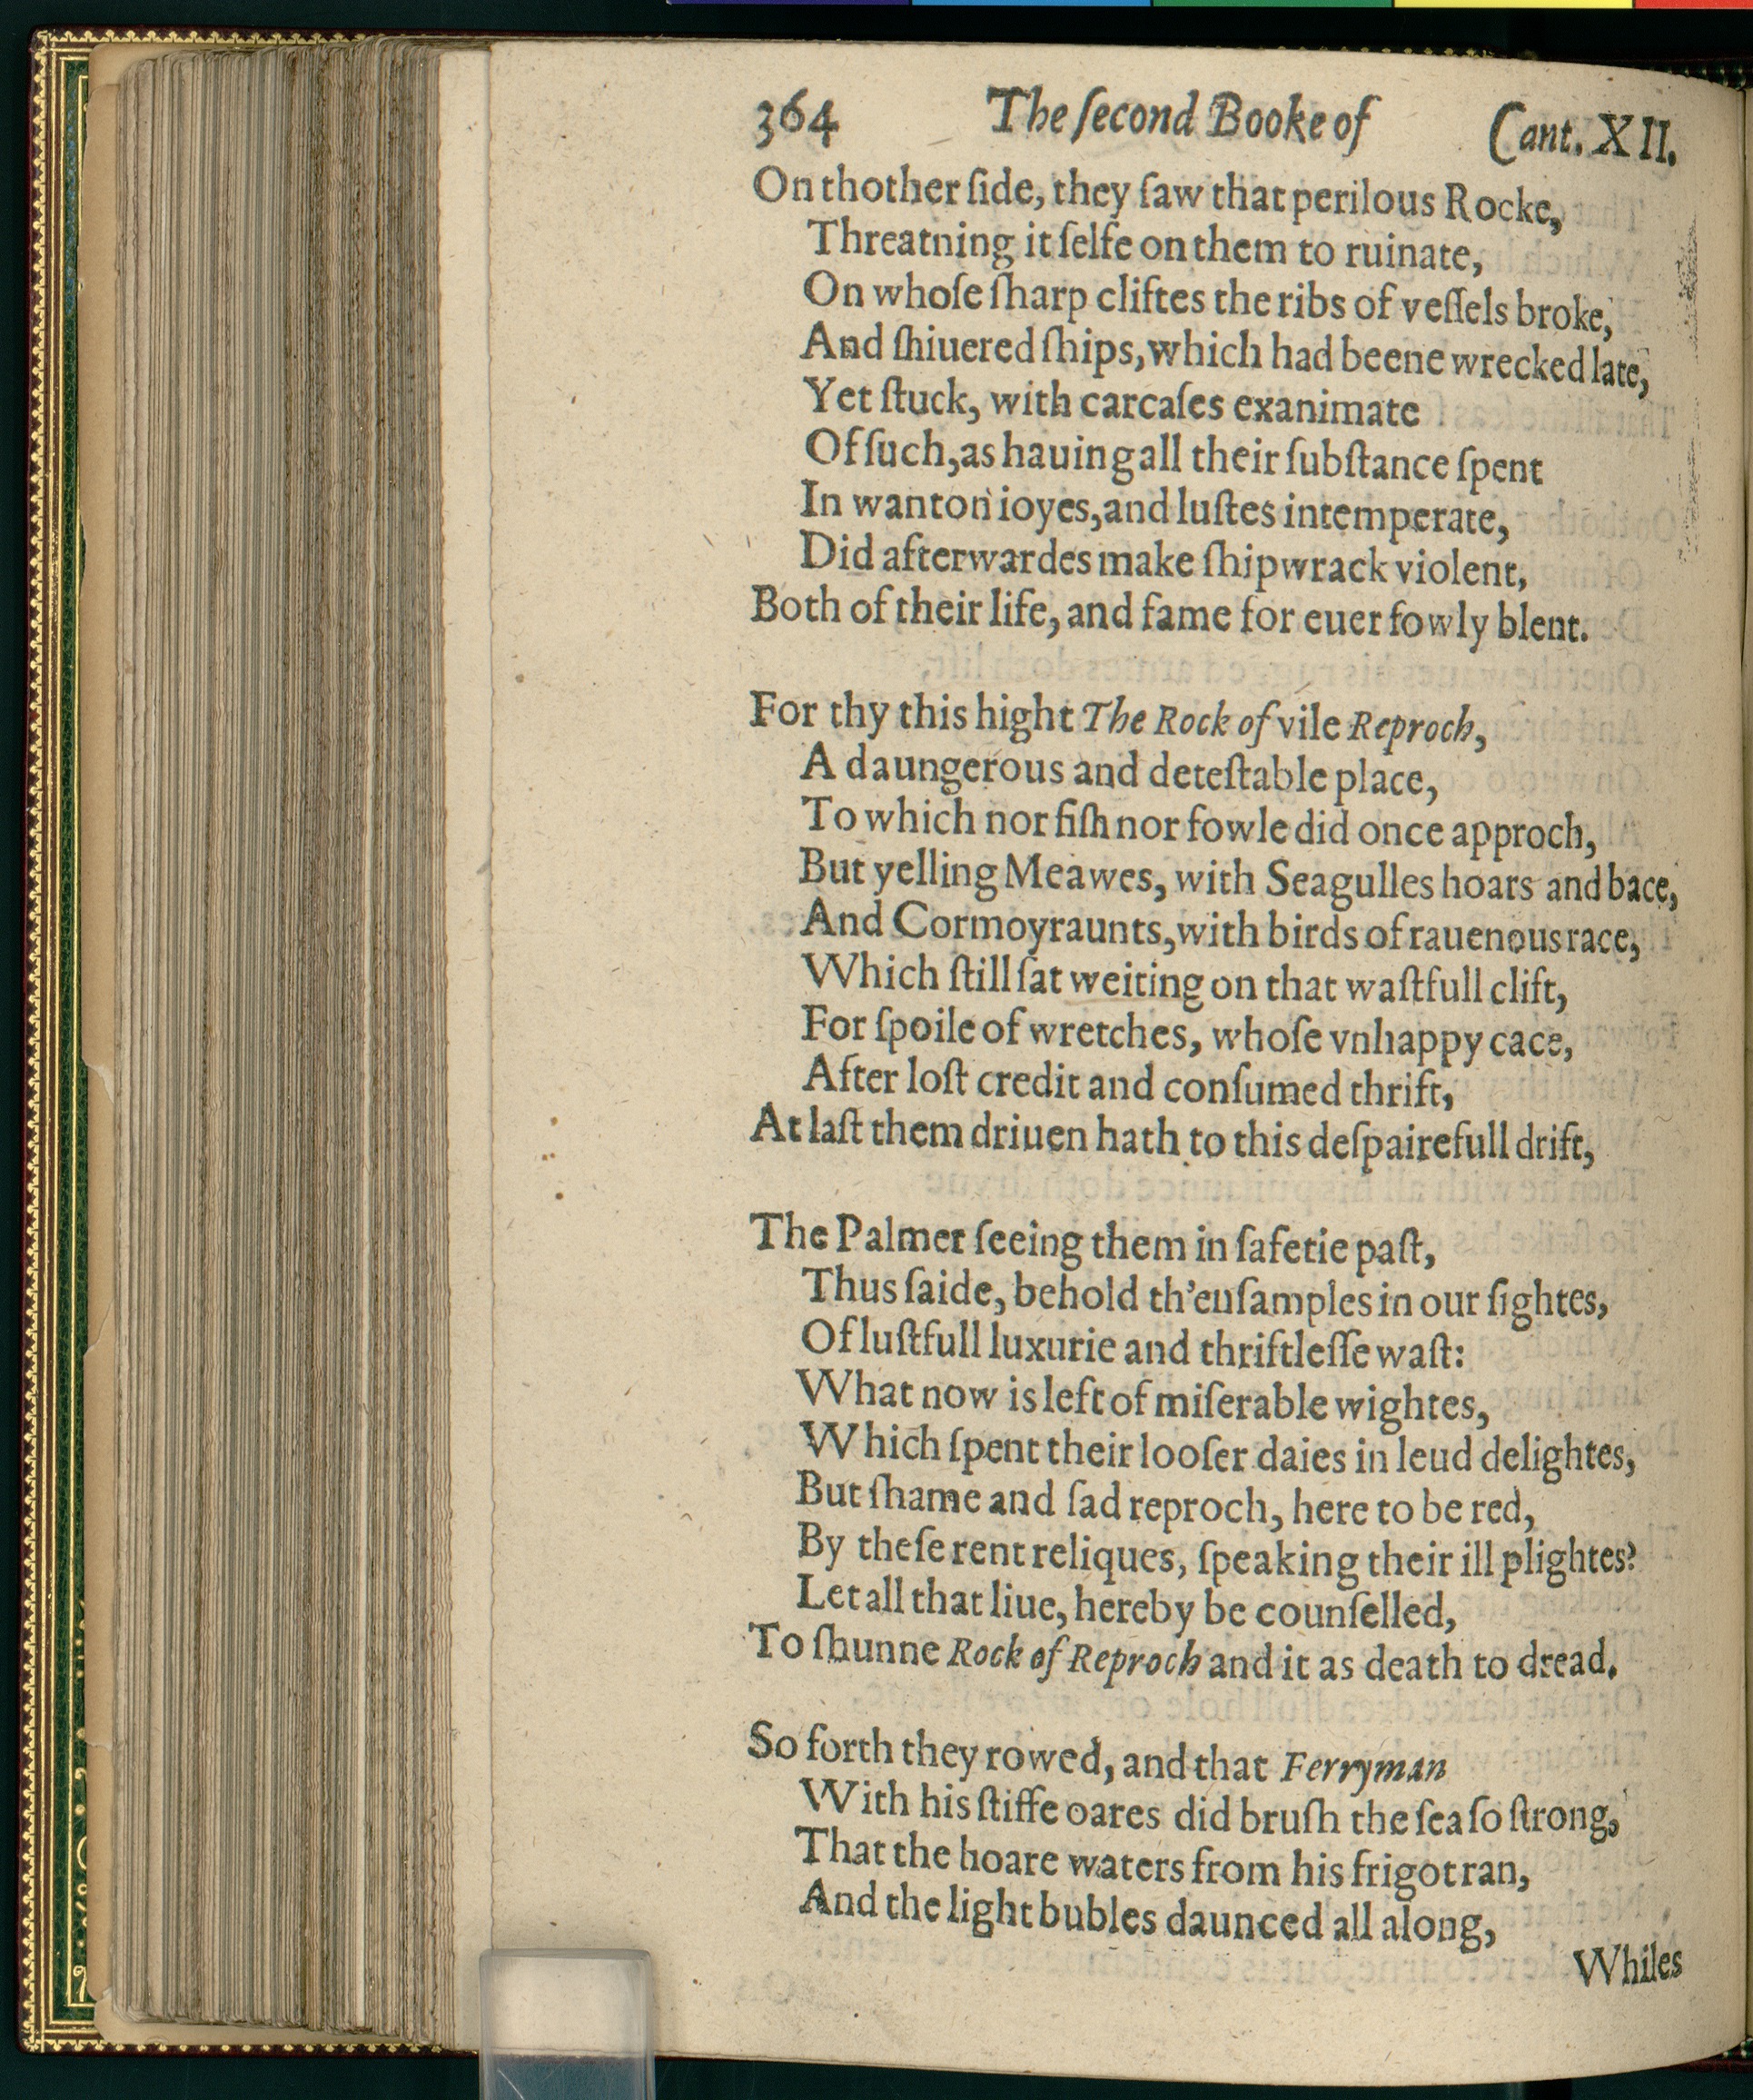 364 The ſecond Booke of Cant. XII.
On thother ſide, they ſaw that perilous Rocke,
Threatning it ſelfe on them to ruinate,
On whoſe ſharp cliftes the ribs of veſſels broke,
And ſhiuered ſhips, which had beene wrecked late,
Yet ſtuck, with carcaſes exanimate
Of ſuch, as hauing all their ſubſtance ſpent
In wanton ioyes, and luſtes intemperate,
Did afterwardes make ſhipwrack violent,
Both of their life, and fame for euer fowly blent.
For thy this hight The Rock of vile Reproch,
A daungerous and deteſtable place,
To which nor fiſh nor fowle did once approch,
But yelling Meawes, with Seagulles hoars and bace,
And Cormoyraunts, with birds of rauenous race,
Which ſtill ſat weiting on that waſtfull clift,
For ſpoile of wretches, whoſe vnhappy cace,
After loſt credit and conſumed thrift,
At laſt them driuen hath to this deſpairefull drift,
The Palmer ſeeing them in ſafetie paſt,
Thus ſaide, behold th'enſamples in our ſightes,
Of luſtfull luxurie and thriftleſſe waſt:
What now is left of miſerable wightes,
Which ſpent their looſer daies in leud delightes,
But ſhame and ſad reproch, here to be red,
By theſe rent reliques, ſpeaking their ill plightes?
Let all that liue, hereby be counſelled,
To ſhunne Rock of Reproch and it as death to dread.
So forth they rowed, and that Ferryman
With his ſtiffe oares did bruſh the ſea ſo ſtrong,
That the hoare waters from his frigot ran,
And the light bubles daunced all along,
Whiles